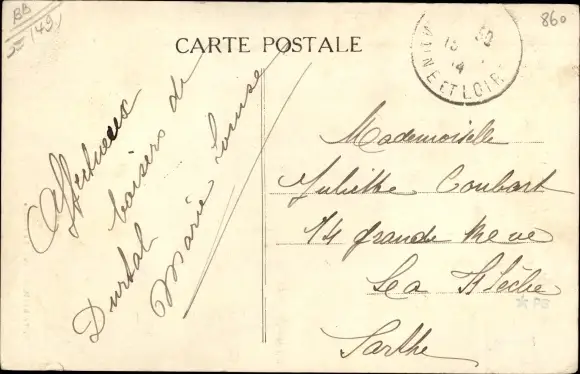 BB
149
860
CARTE POSTALE
13 50
14
NE ET LOIR
Affectueux
baisers de
Durtal
Marie Louise
Mademoiselle
Juliette Coubart
14 grande Rue
La Flèche
Sarthe